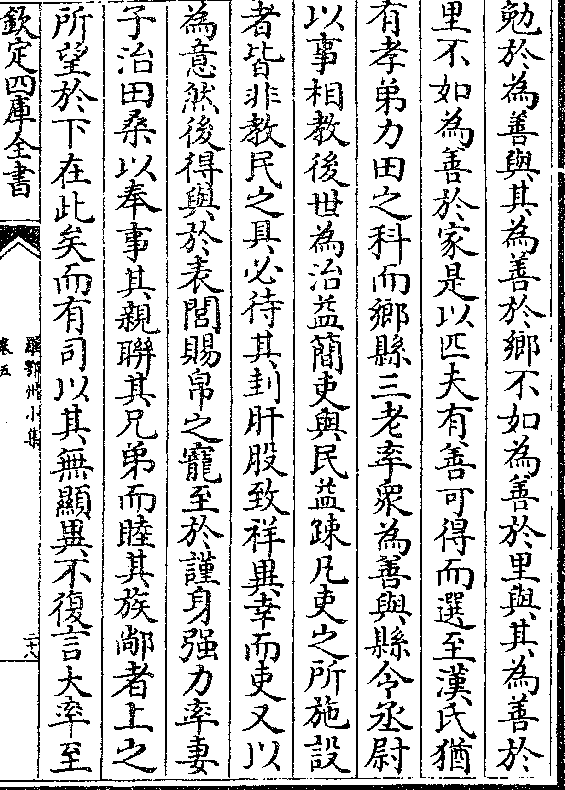 勉於為善與其為善於鄉不如為善於里與其為善於
里不如為善於家是以匹夫有善可得而選至漢氏猶
有孝弟力田之科而鄉縣三老率衆為善與縣令丞尉
以事相教後世為治益簡吏與民益踈凡吏之所施設
者皆非教民之具必待其刲肝股致祥異幸而吏又以
為意然後得與於表閭賜帛之寵至於謹身强力率妻
子治田桑以奉事其親聯其兄弟而睦其族鄰者上之
所望於下在此矣而有司以其無顯異不復言大率至
欽定四庫全書
鄂州小集
卷五